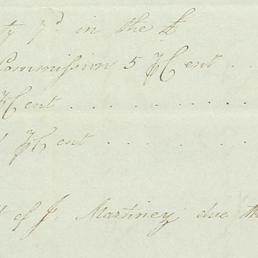 ty 7d in the £
Commission 5 ℔ Cent . .
℔ Cent . . . . . . . . . .
℔ Cent . . . . . . . .
of J. Martiney due th